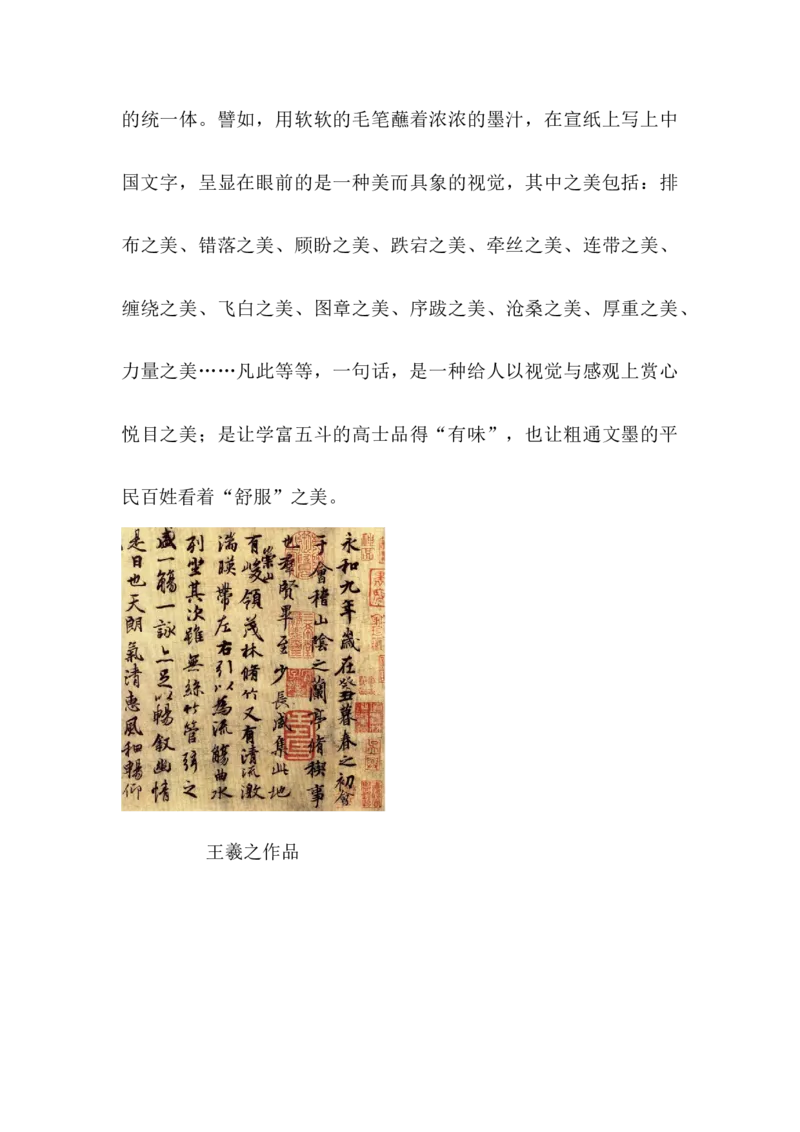 的统一体。譬如，用软软的毛笔蘸着浓浓的墨汁，在宣纸上写上中
国文字，呈显在眼前的是一种美而具象的视觉，其中之美包括：排
布之美、错落之美、顾盼之美、跌宕之美、牵丝之美、连带之美、
缠绕之美、飞白之美、图章之美、序跋之美、沧桑之美、厚重之美、
力量之美……凡此等等，一句话，是一种给人以视觉与感观上赏心
悦目之美；是让学富五斗的高士品得“有味”，也让粗通文墨的平
民百姓看着“舒服”之美。
永和九年歲在癸丑暮春之初會
于會稽山陰之蘭亭脩稧事
也羣賢畢至少長咸集此地
有崇山峻領茂林脩竹又有清流激
湍暎帶左右引以為流觴曲水
列坐其次雖無絲竹管弦之
盛一觴一詠亦足以暢叙幽情
是日也天朗氣清惠風和暢仰
王羲之作品